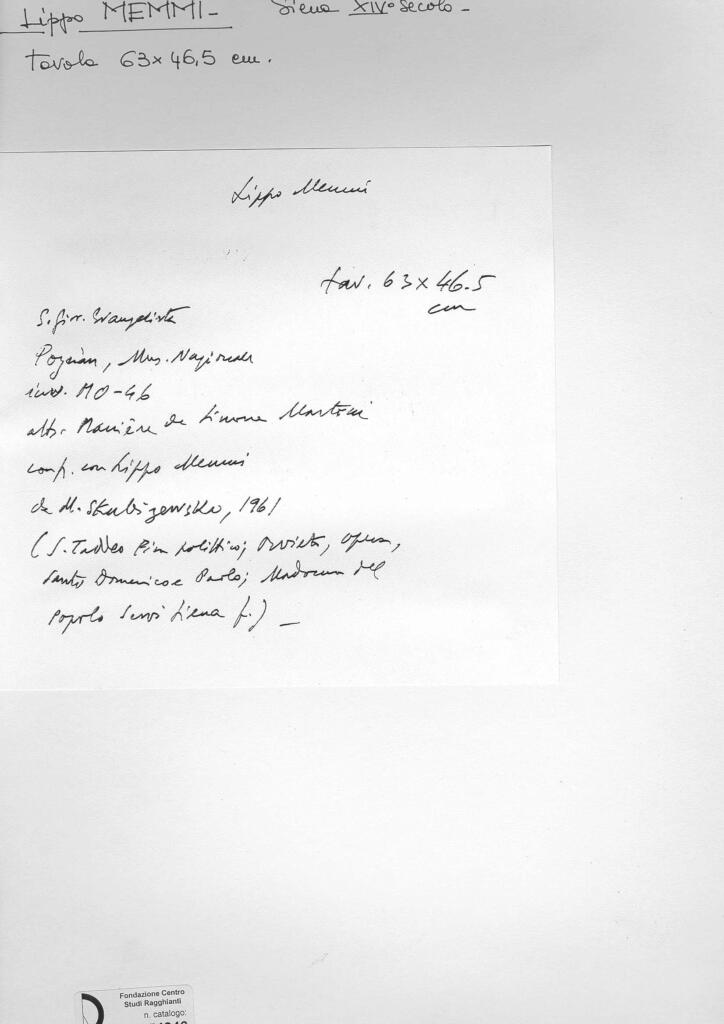 Lippo MEMMI- Siena XIV° secolo -
tavola 63x46,5 cm.
Lippo Memmi
tav. 63x46.5
cm
S. Giov. Evangelista
Poznan, Mus. Nazionale
inv. MO-46
attr. Manière de Simone Martini
conf. con Lippo Memmi
da M. Skubiszewska, 1961
(S. Taddeo Pisa polittico; Orvieto, Opera,
Santi Domenico e Paolo; Madonna del
Popolo Servi Siena f.) -
Fondazione Centro
Studi Ragghianti
n. catalogo: